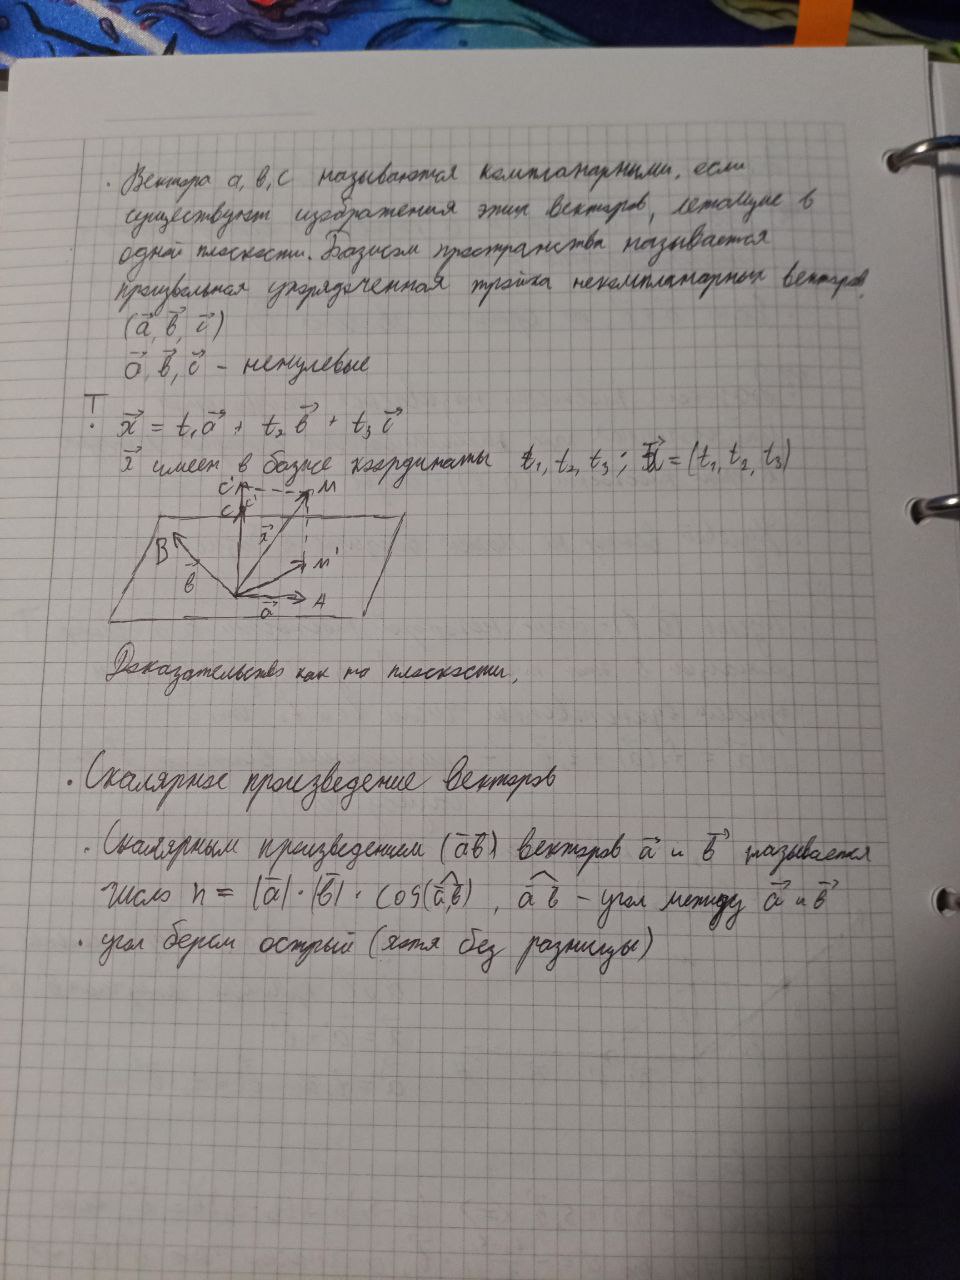 · Вектора a, b, c называются компланарными, если
существуют изображения этих векторов, лежащие в
одной плоскости. Базисом пространства называется
произвольная упорядоченная тройка некомпланарных векторов
(a⃗, b⃗, c⃗)
a⃗, b⃗, c⃗ - ненулевые
T
· x⃗ = t₁a⃗ + t₂b⃗ + t₃c⃗
x⃗ имеет в базисе координаты t₁, t₂, t₃; x⃗ = (t₁, t₂, t₃)
C' M
C c⃗
x⃗
B M'
b⃗
a⃗ A
Доказательство как на плоскости.
· Скалярное произведение векторов
· Скалярным произведением (a⃗b⃗) векторов a⃗ и b⃗ называется
число n = |a⃗| · |b⃗| · cos(a⃗,b⃗), a⃗ b⃗ - угол между a⃗ и b⃗
· угол берем острый (хотя без разницы)